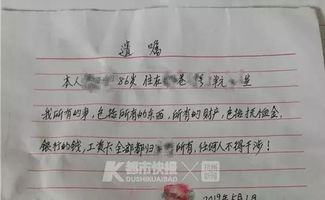 遗嘱
本人 86岁 住在 巷 号
我所有的事,包括所有的东西,所有的财产,包括抚恤金,
银行的钱,工资卡全部都归 所有,任何人不得干涉!
都市快报
DUSHIKUAIBAO
2019年5月1日